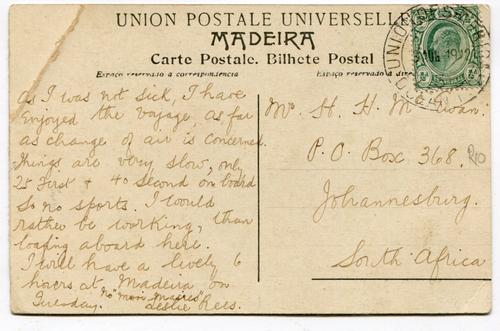 UNION POSTALE UNIVERSELLE
MADEIRA
Carte Postale. Bilhete Postal
Espaço reservado á correspondencia
As I was not sick, I have
Enjoyed the voyage, as far
as change of air is concerned
Things are very slow, only
25 First & 40 second on board
so no sports. I would
rather be working, than
loafing aboard here.
I will have a lively 6
hours at Madeira on
Tuesday. No "Man Madres"
Leslie Rees.
Mr H. H. McCowan.
P. O. Box 368.
Johannesburg.
South Africa
R10